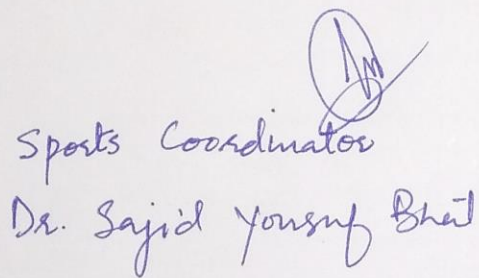 Sports Coordinator
Dr. Sajid Yousuf Bhat